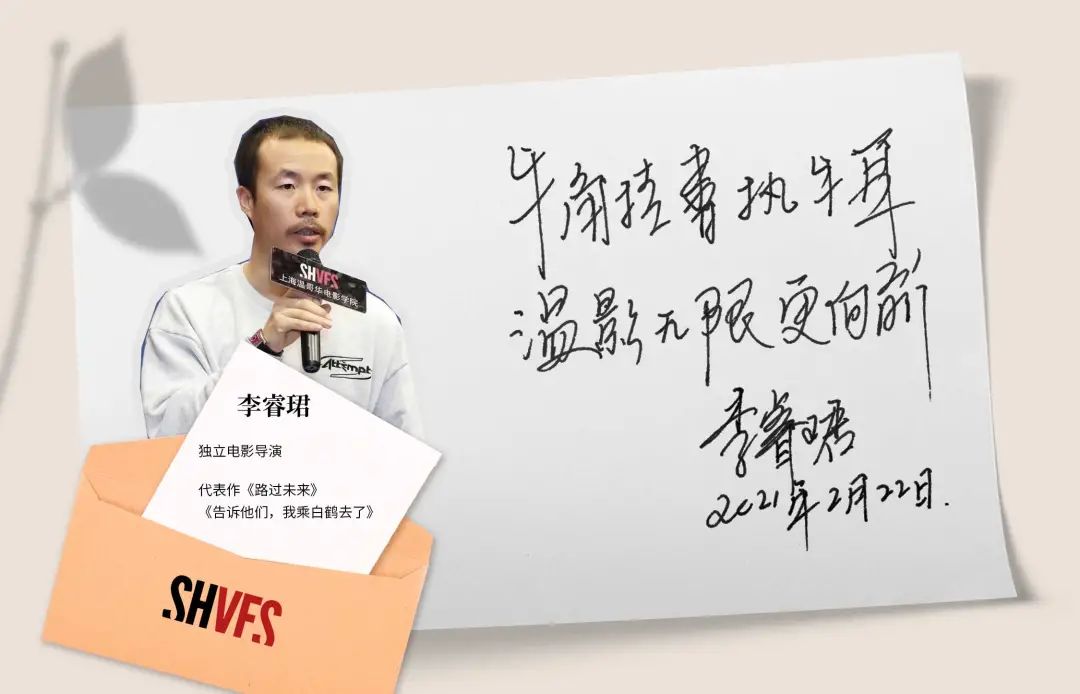 牛角挂书执牛耳
温影无限更向前
李睿珺
2021年2月22日.
SHVFS
上海温哥华电影学院
Attempt
李睿珺
独立电影导演
代表作《路过未来》
《告诉他们，我乘白鹤去了》
SHVFS